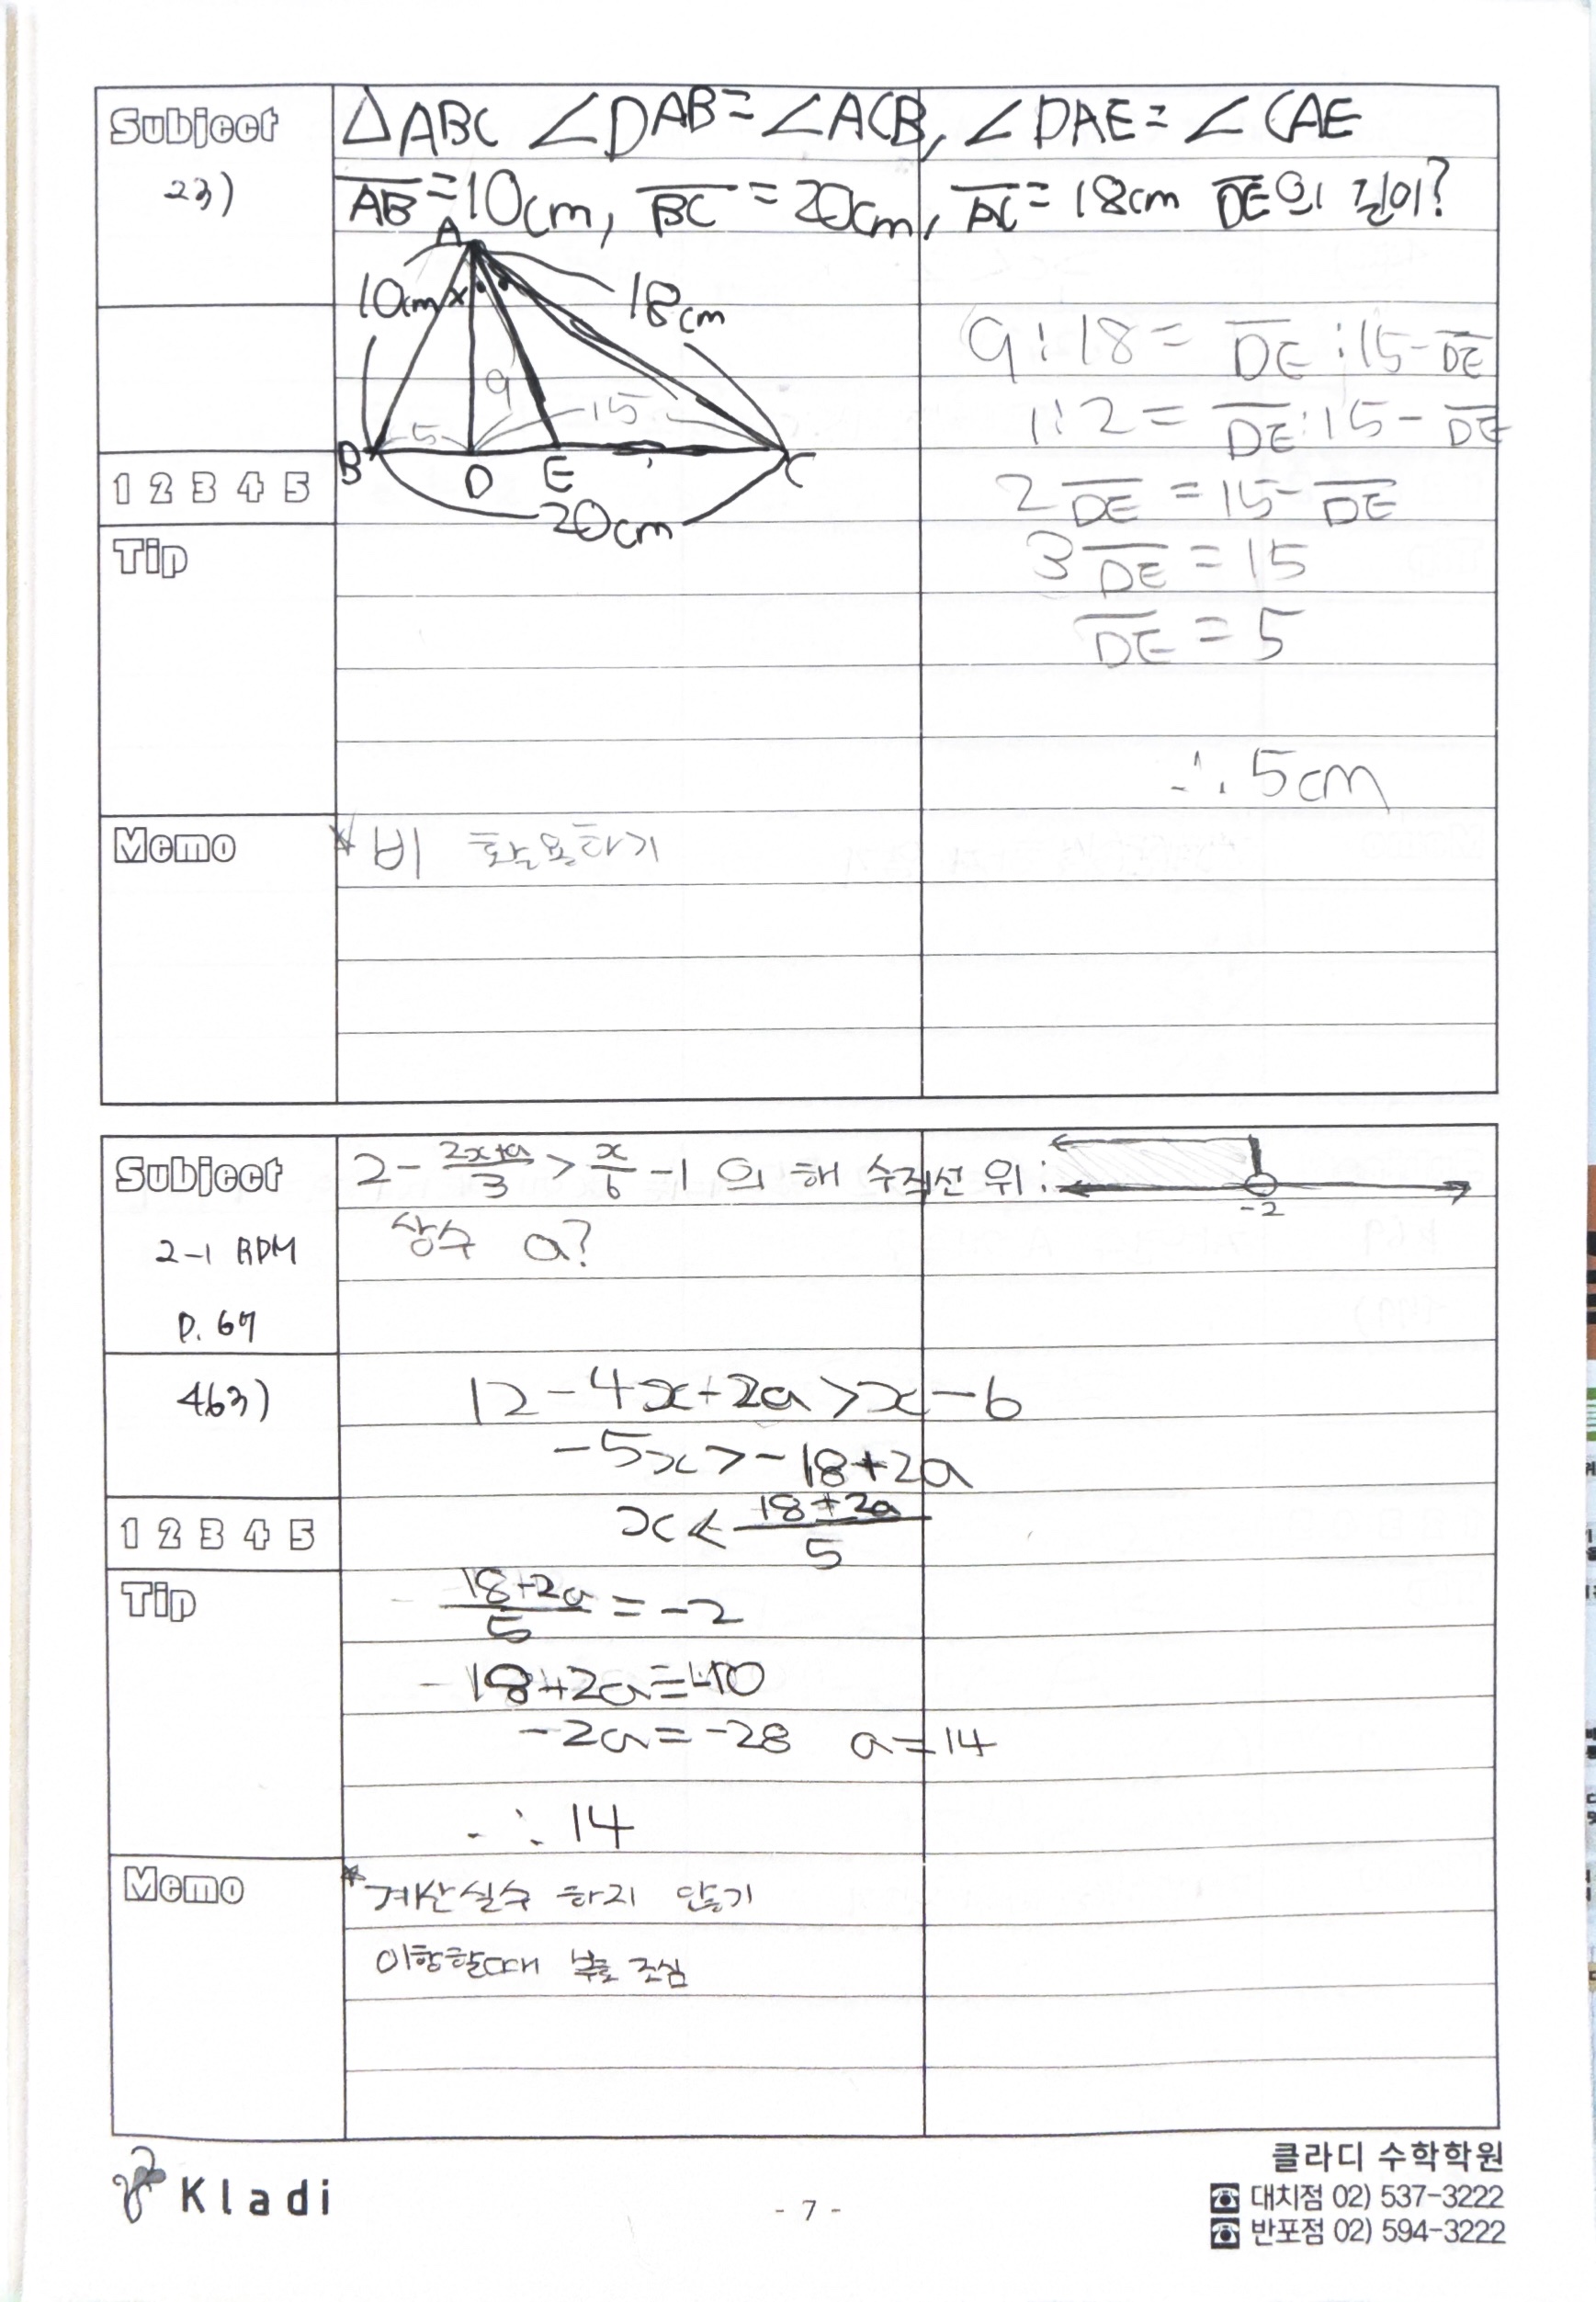 Subject
23)
△ABC ∠DAB=∠ACB, ∠DAE=∠CAE
AB=10cm, BC=20cm, AC=18cm DE의 길이?
A
10cm
×
18cm
9
5
15
B
D
E
C
20cm
9:18=DE:15-DE
1:2=DE:15-DE
2DE=15-DE
3DE=15
DE=5
∴5cm
1 2 3 4 5
Tip
Memo
*비 활용하기
Subject
2-1 RPM
P.67
463)
2-(2x+a)/3>x/6-1의 해 수직선 위:
-2
상수 a?
12-4x-2a>x-6
-5x>-18+2a
x<(18-2a)/5
(18-2a)/5=-2
18-2a=-10
-2a=-28 a=14
∴14
1 2 3 4 5
Tip
Memo
*계산실수 하지 않기
이항할때 부호 조심
Kladi
- 7 -
클라디 수학학원
☎ 대치점 02) 537-3222
☎ 반포점 02) 594-3222